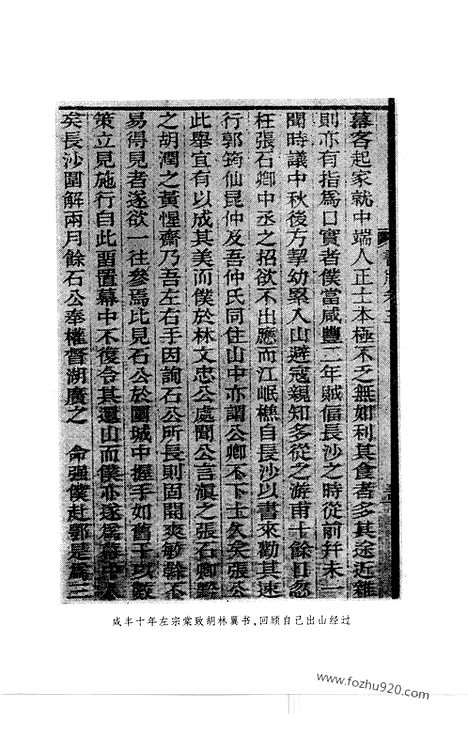 幕客起家就中端人正士本極不乏無如利其食者多其途近雜
則亦有指為口實者僕當咸豐二年賊偪長沙之時從前幷未一
聞時議中秋後方挈幼累入山避寇親知多從之游甫十餘日忽
枉張石卿中丞之招欲不出應而江岷樵自長沙以書來勸其速
行郭筠仙昆仲及吾仲氏同住山中亦謂公卿不下士久矣張公
此舉宜有以成其美而僕於林文忠公處聞公言滇之張石卿黔
之胡潤之黃惺齋乃吾左右手因詢石公所長則固開爽敏幹不
易得見者遂欲一往參焉比見石公於圍城中握手如舊干以數
策立見施行自此留置幕中不復令其還山而僕亦遂為幕中人
矣長沙圍解兩月餘石公奉權督湖廣之 命強僕赴鄂是為三
咸丰十年左宗棠致胡林翼书，回顾自己出山经过
www.fozhu920.com